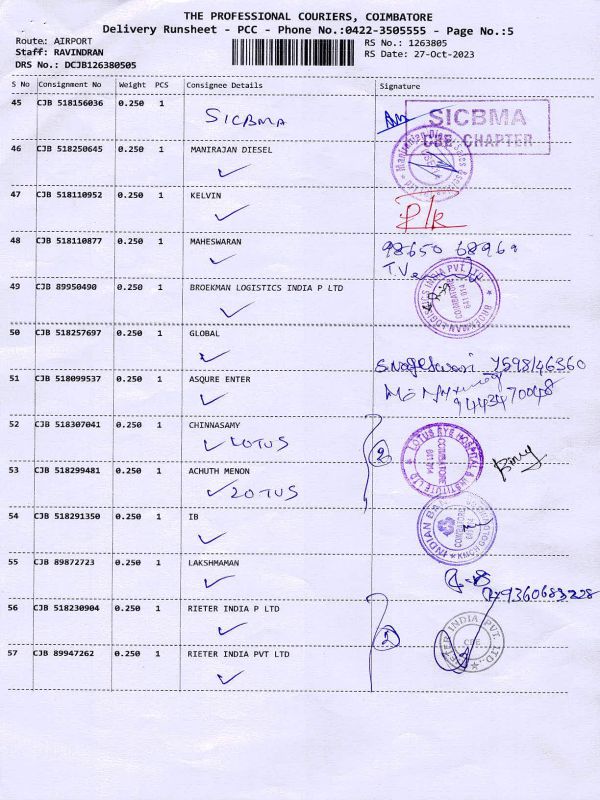 THE PROFESSIONAL COURIERS, COIMBATORE
Delivery Runsheet - PCC - Phone No.:0422-3505555 - Page No.:5
Route: AIRPORT RS No.: 1263805
Staff: RAVINDRAN RS Date: 27-Oct-2023
DRS No.: DCJB126380505
S No Consignment No Weight PCS Consignee Details Signature
45 CJB 518156036 0.250 1 SICBMA SICBMA
CBE CHAPTER
46 CJB 518250645 0.250 1 MANIRAJAN DIESEL
47 CJB 518110952 0.250 1 KELVIN
48 CJB 518110877 0.250 1 MAHESWARAN
49 CJB 89950490 0.250 1 BROEKMAN LOGISTICS INDIA P LTD COIMBATORE 641 014
50 CJB 518257697 0.250 1 GLOBAL 7598146360
51 CJB 518099537 0.250 1 ASQURE ENTER 9443470048
52 CJB 518307041 0.250 1 CHINNASAMY
LOTUS 2 LOTUS EYE HOSPITAL & INSTITUTE LTD COIMBATORE 641 014
53 CJB 518299481 0.250 1 ACHUTH MENON
LOTUS
54 CJB 518291350 0.250 1 IB INDIAN BANK
55 CJB 89872723 0.250 1 LAKSHMAMAN 9360683228
56 CJB 518230904 0.250 1 RIETER INDIA P LTD 2 RIETER INDIA PVT. LTD. CBE
57 CJB 89947262 0.250 1 RIETER INDIA PVT LTD